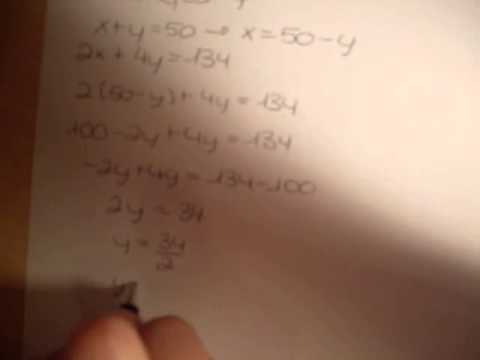 x+y=50 → x=50-y
2x+4y=134
2(50-y)+4y=134
100-2y+4y=134
-2y+4y=134-100
2y=34
y=34/2
y